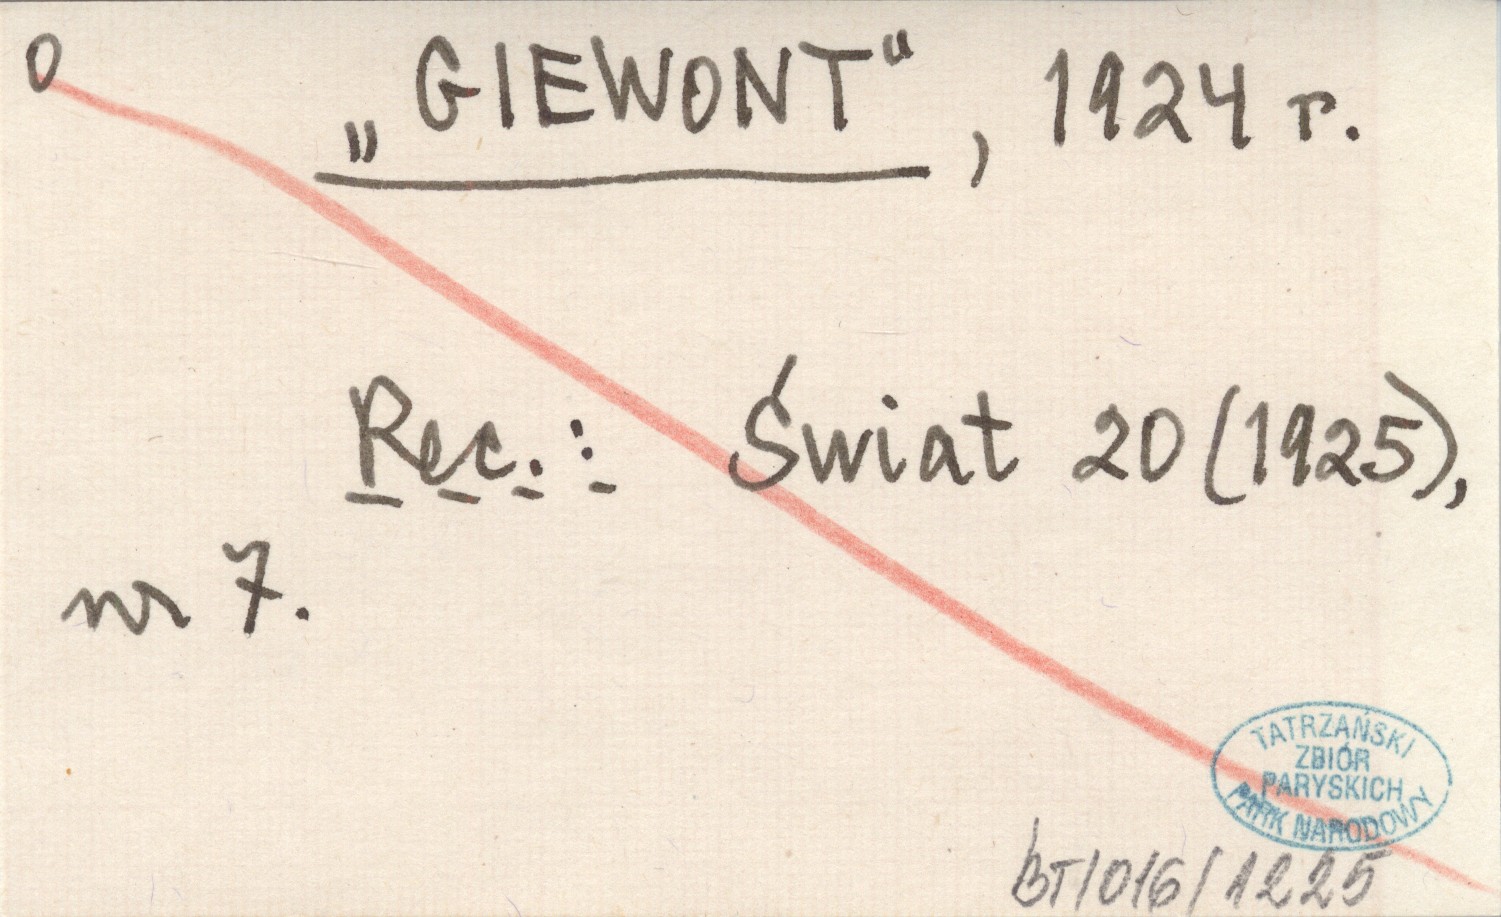 O
„GIEWONT“, 1924 r.
Rec.: Świat 20 (1925),
nr 7.
TATRZAŃSKI
ZBIÓR
PARYSKICH
PARK NARODOWY
BT/016/1225